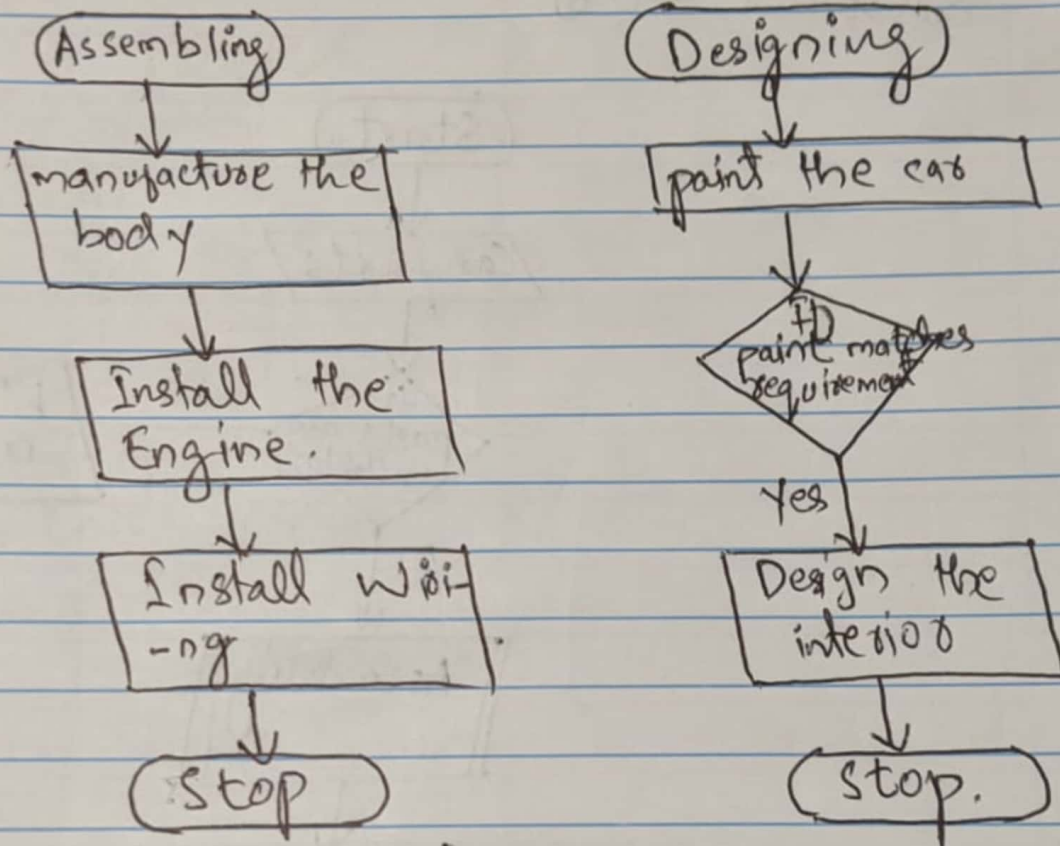 Assembling
manufacture the
body
Install the
Engine.
Install Wiri-
-ng
Stop
Designing
paint the car
paint matches
requirement
Yes
Design the
interior
Stop.